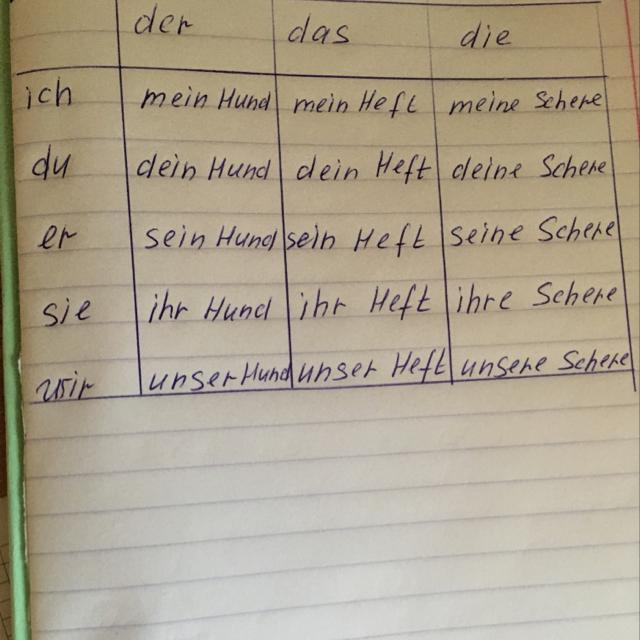 der das die
ich mein Hund mein Heft meine Schere
du dein Hund dein Heft deine Schere
er sein Hund sein Heft seine Schere
sie ihr Hund ihr Heft ihre Schere
wir unser Hund unser Heft unsere Schere